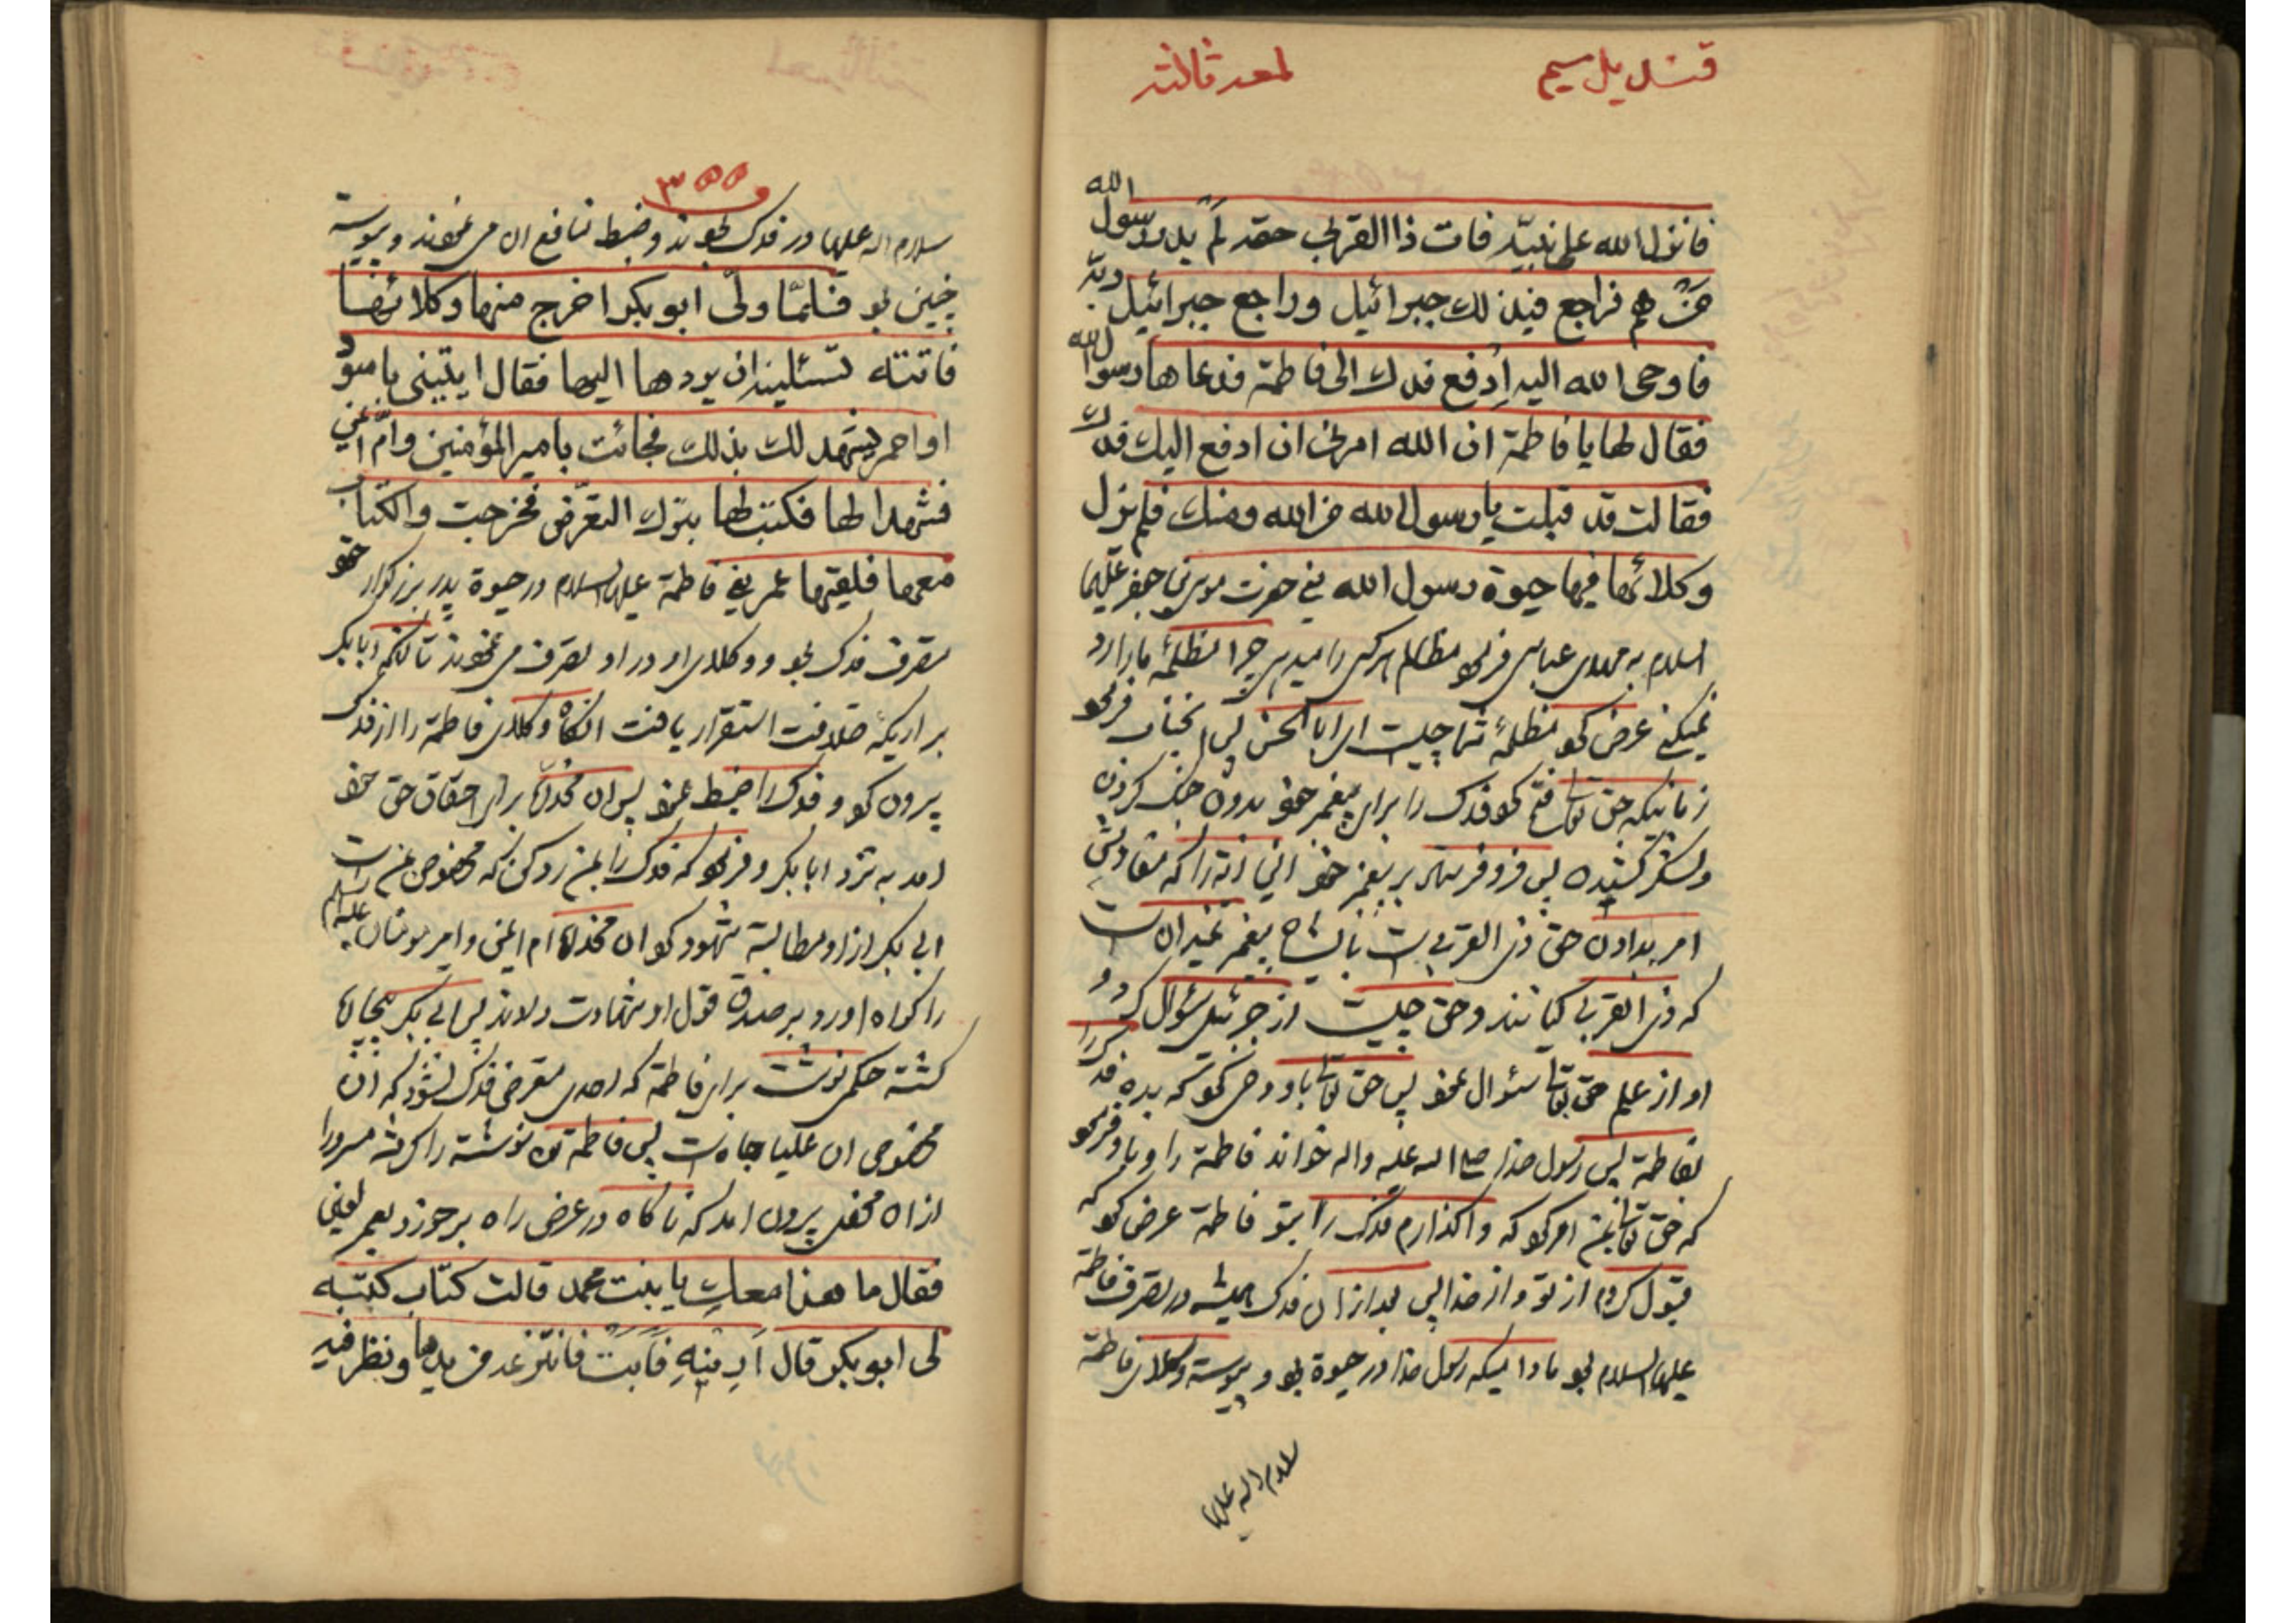 قندیل سیم
لمعه ثالثه
فانزل الله علی نبیّه فات ذا القربی حقه لم یدر رسول الله
من هم فراجع فی ذلك جبرائیل وراجع جبرائیل ربّه
فاوحی الله الیه اِدفع فدك الی فاطمة فدعاها رسول الله
فقال لها یا فاطمة ان الله امرنی ان ادفع الیك فدك
فقالت قد قبلت یا رسول الله من الله ومنك فلم یزل
وکلائها فیها حیوة رسول الله یعنی حضرت موسی بن جعفر علیهما
السلام به مهدی عباسی فرمود مظالم هر کس را میدهی چرا مظلمهٔ ما را رد
نمیکنی عرض کرد مظلمهٔ شما چیست ای ابا الحسن پس آنجناب فرمود
زمانیکه حق تعالی فتح کرد فدک را برای پیغمبر خود بدون جنگ کردن
ولشکر کشیدن پس فرو فرستاد بر پیغمبر خود این آیه را که مفادش
امر بدادن حق ذی القربی است بایشان پیغمبر نمیدانست
که ذی القربی کیانند وحق چیست از جبرئیل سؤال کرد و
او از علیم حق تعالی سئوال نمود پس حق تعالی باو وحی کرد که بده فدک را
بفاطمة پس رسول خدا صلی الله علیه واله خواند فاطمة را وباو فرمود
که حق تعالی بمن امر کرد که واگذارم فدک را بتو فاطمة عرض کرد که
قبول کردم از تو واز خدا پس بعد از ان فدک همیشه در تصرف فاطمة
علیها السلام بود مادامیکه رسول خدا در حیوة بود و پیوسته وکلای فاطمة
سلام الله علیها
۳۵۵
سلام الله علیها در فدک بودند وضبط منافع ان می نمودند و پیوسته
چنین بود فلمّا ولّی ابو بکر اخرج منها وکلائها
فاتته تسئله ان یردها الیها فقال ایتینی باسود
او احمر یشهد لك بذلك فجائت بامیر المؤمنین وامّ ایمن
فشهدا لها فکتب لها بترك التعرّض فخرجت والکتاب
معها فلقیها عمر یعنی فاطمة علیها السلام در حیوة پدر بزرگوار خود
متصرف فدک بود و وکلای او در او تصرف می نمودند تا آنکه ابا بکر
بر اریکهٔ خلافت استقرار یافت انگاه وکلای فاطمة را از فدک
بیرون کرد و فدک را ضبط نمود پس ان مخدره برای احقاق حق خود
امد به نزد ابا بکر و فرمود که فدک را بمن رد کن که مخصوص من است
ابی بکر از او مطالبة شهود کرد ان مخدره ام ایمن و امیر مومنان علیه السلام
را گواه اورد و بر صدق قول او شهادت دادند پس ابی بکر
گشته حکمی نوشت برای فاطمة که احدی متعرض فدک نشود که آن
مخصوص ان علیا جاه است پس فاطمة نوشته را گرفته مسرورا
از ان محفل بیرون امد که ناگاه در عرض راه برخورد بعمر لعین
فقال ما هذا معكِ یا بنت محمد قالت کتاب کتبه
لی ابو بکر قال اَرِینیهِ فَاَبَت فانتزعه من یدها ونظر فیه